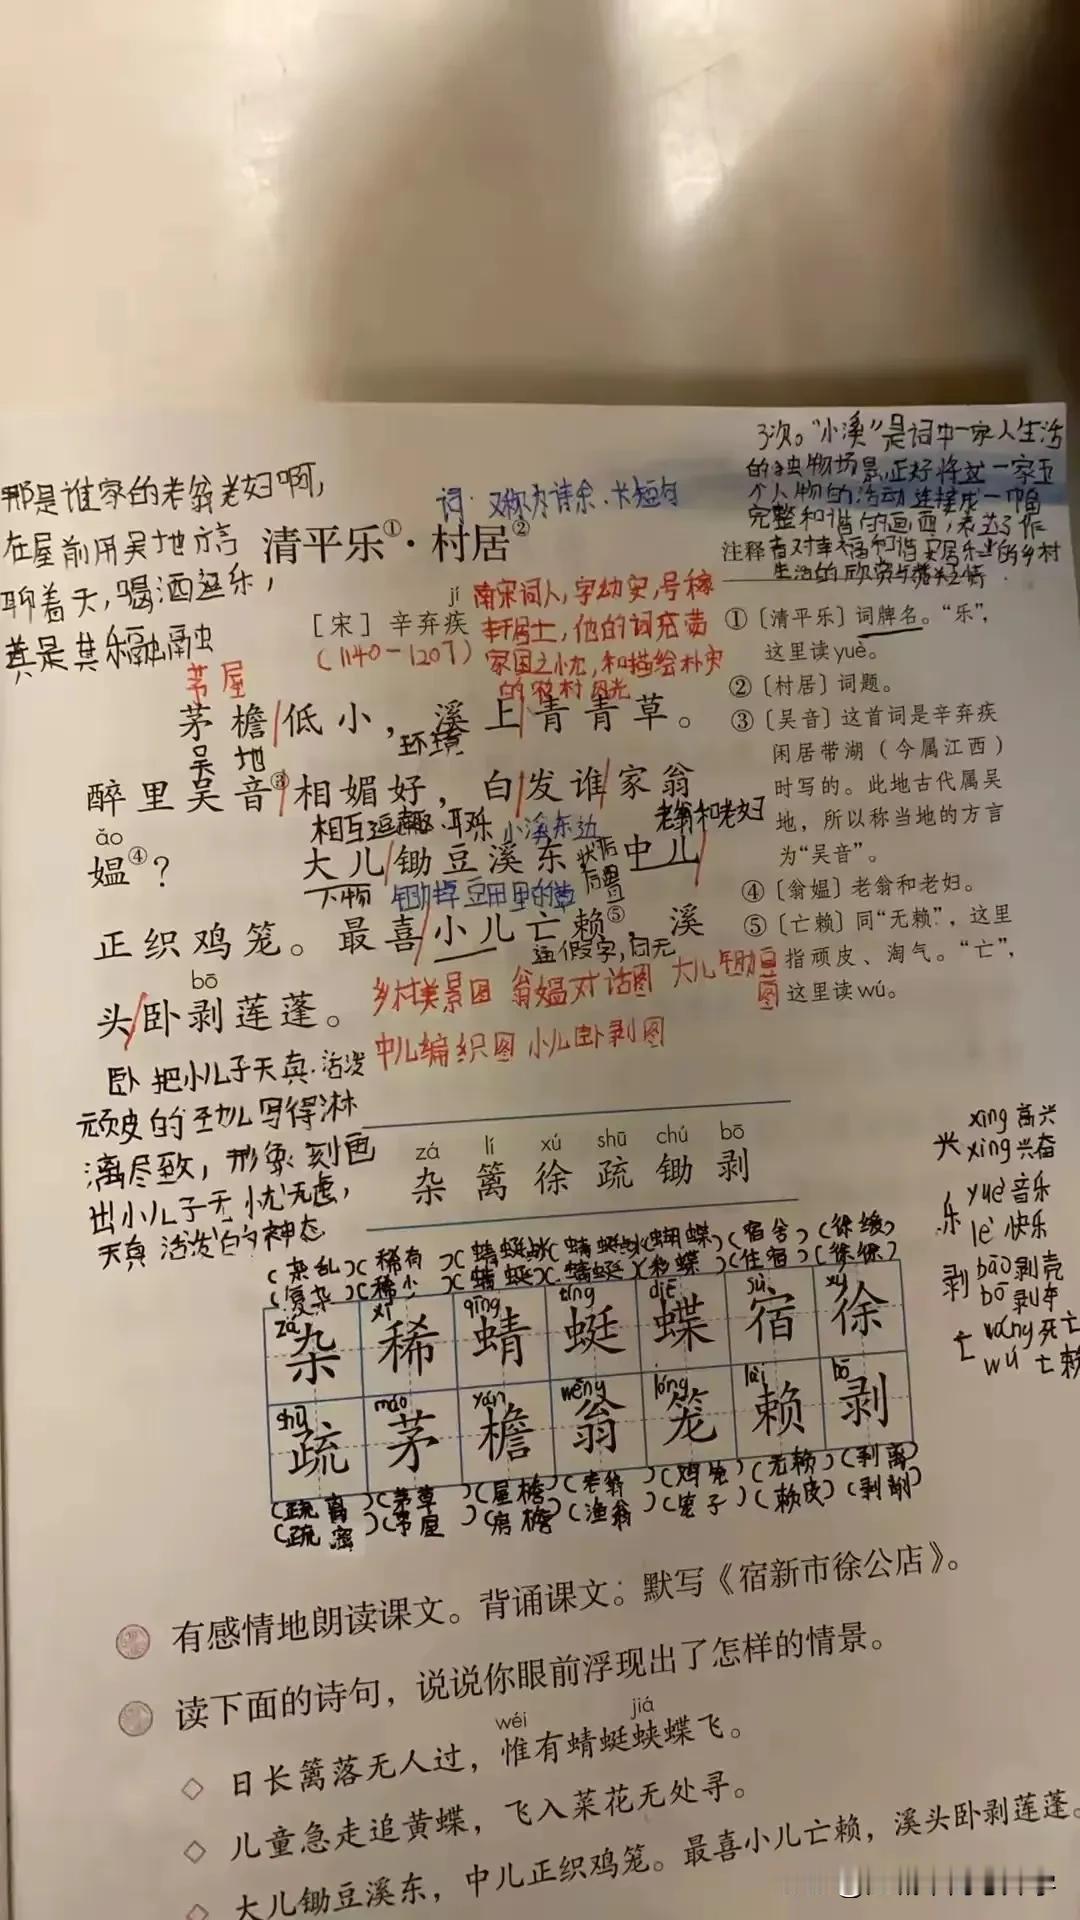 3次。"小溪"是词中一家人生活
的独物场景,正好将这一家五
个人物的活动连接成一幅
完整和谐的画面,表达了作
者对幸福和谐安居乐业的乡村
生活的欣赏与
那是谁家的老翁老妇啊,
在屋前用吴地方言
聊着天,喝酒逗乐,
真是其乐融融
词:又称为诗余·长短句
清平乐①·村居②
jí
[宋] 辛弃疾
(1140-1207)
南宋词人,字幼安,号稼
轩居士,他的词充满
家国之忧,和描绘朴实
的农村风光
茅屋
茅檐/低小,溪上/青青草。
吴地
环境
醉里吴音③/相媚好,白/发谁/家翁
ǎo
相互逗趣、取乐
小溪东边
老翁和老妇
媪④?
大儿/锄豆溪东 中儿/
状语后置
人物
锄掉豆田里的草
正织鸡笼。最喜/小儿亡赖⑤,溪
通假字,同无
bō
头/卧剥莲蓬。
乡村美景图 翁媪对话图 大儿锄豆图
中儿编织图 小儿卧剥图
卧 把小儿子天真、活泼
顽皮的 写得淋
漓尽致,形象刻画
出小儿子无忧无虑,
天真活泼的神态
注释
① 〔清平乐〕词牌名。“乐”,
这里读yuè。
② 〔村居〕词题。
③ 〔吴音〕这首词是辛弃疾
闲居带湖(今属江西)
时写的。此地古代属吴
地,所以称当地的方言
为“吴音”。
④ 〔翁媪〕老翁和老妇。
⑤ 〔亡赖〕同“无赖”,这里
指顽皮、淘气。“亡”,
这里读wú。
zá lí xú shū chú bō
杂 篱 徐 疏 锄 剥
兴 xìng 高兴
xīng 兴奋
乐 yuè 音乐
lè 快乐
剥 bāo 剥壳
bō
亡 wáng 死亡
wú 亡赖
(杂乱)(稀有)(蜻蜓点水)(蜻蜓点水)(蝴蝶)(宿舍)(徐缓)
(复杂)(稀少)(蜻蜓)(蜻蜓)(彩蝶)(住宿)(徐徐)
zá xī qīng tíng dié sù xú
杂 稀 蜻 蜓 蝶 宿 徐
shū máo yán wēng lóng lài bō
疏 茅 檐 翁 笼 赖 剥
(疏离)(茅草)(屋檐)(老翁)(鸡笼)(无赖)(剥离)
(疏密)(茅屋)(房檐)(渔翁)(笼子)(赖皮)(剥削)
有感情地朗读课文。背诵课文。默写《宿新市徐公店》。
读下面的诗句,说说你眼前浮现出了怎样的情景。
wéi jiá
◇ 日长篱落无人过,惟有蜻蜓蛱蝶飞。
◇ 儿童急走追黄蝶,飞入菜花无处寻。
◇ 大儿锄豆溪东,中儿正织鸡笼。最喜小儿亡赖,溪头卧剥莲蓬。